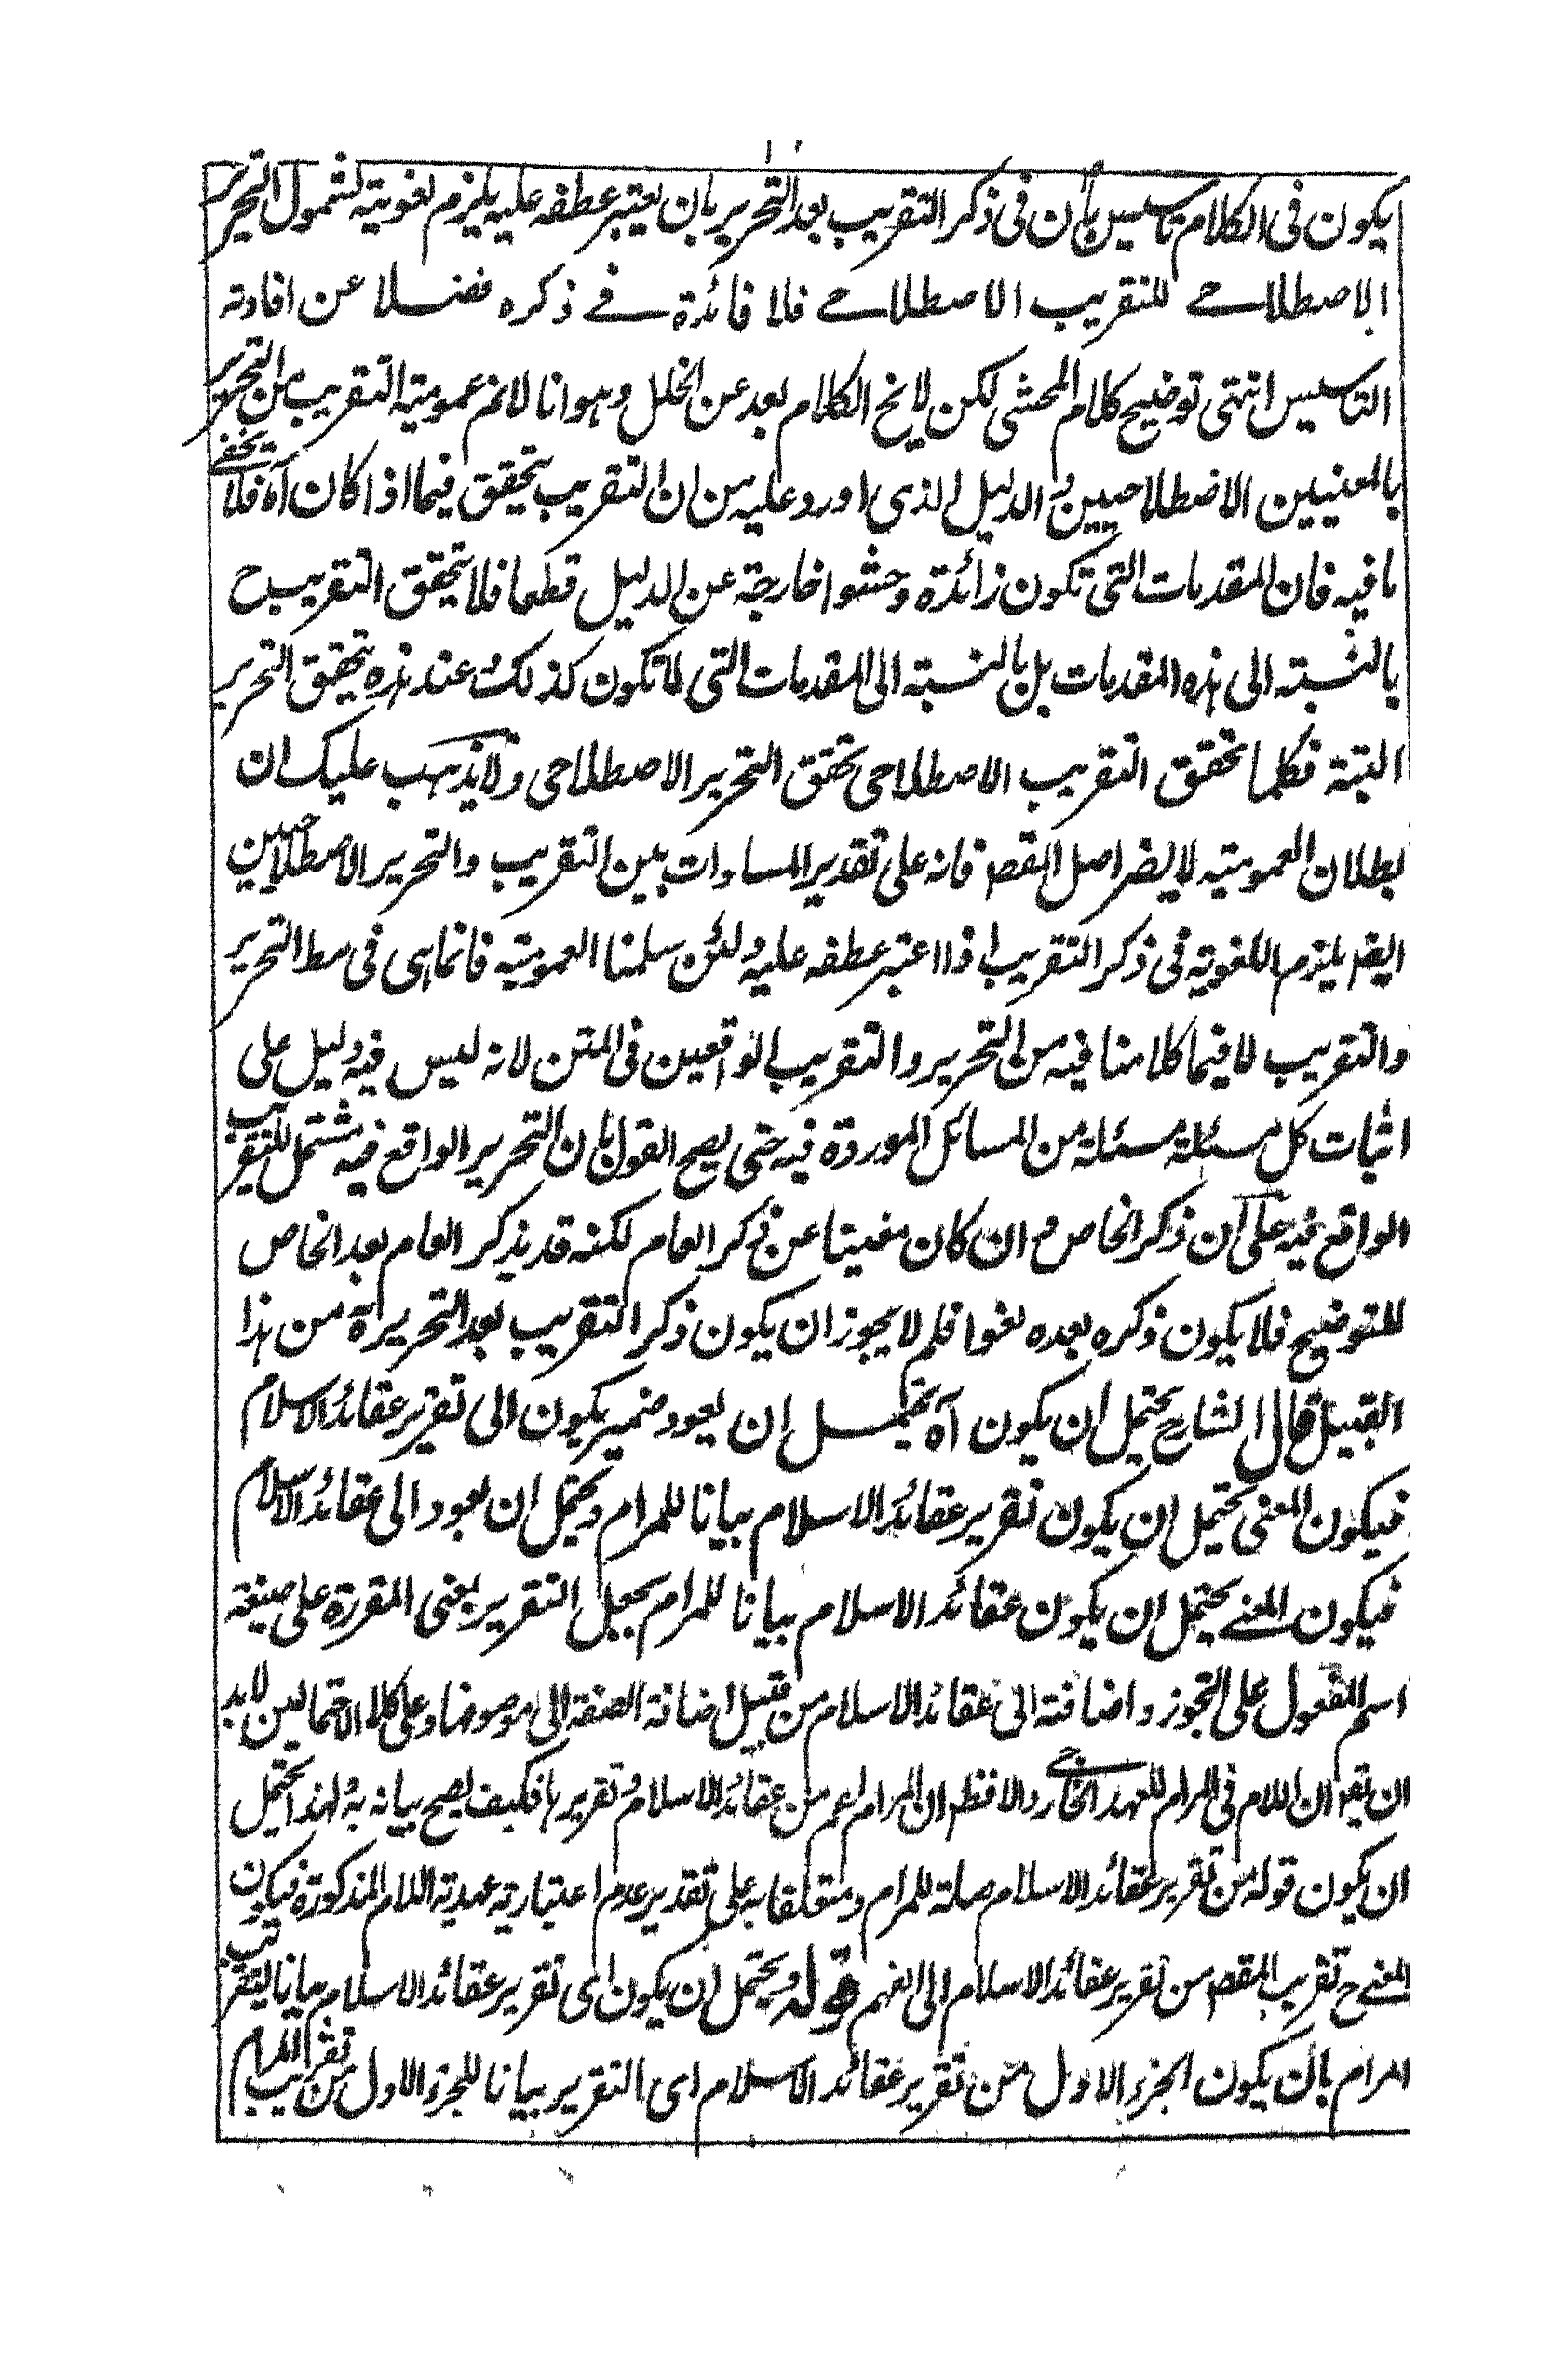 ١٠
يكون فى الكلام تاسيس بان فى ذكر التقريب بعد التحرير بان يعتبر عطفه عليه يلزم لغويته لشمول التحرير
الاصطلاحے للتقريب الاصطلاحے فلا فائدة فے ذكره فضلا عن افادته
التاسيس انتهى توضيح كلام المحشى لكن لا يخ الكلام بعد عن الخلل وهو انا لانم عمومية التقريب من التحرير
بالمعنيين الاصطلاحيين و الدليل الذى اورد عليه من ان التقريب يتحقق فيما اذا كان آه فلا يخفے
ما فيه فان المقدمات التى تكون زائدة وحشوا خارجة عن الدليل قطعا فلا يتحقق التقريب ح
بالنسبة الى هذه المقدمات بل بالنسبة الى المقدمات التى لا تكون كذلك وعند هذه يتحقق التحرير
البتة فكلما تحقق التقريب الاصطلاحى تحقق التحرير الاصطلاحى ولا يذهب عليك ان
بطلان العمومية لا يضر اصل المقصم فانه على تقدير المساوات بين التقريب والتحرير الاصطلاحيين
ايضم يلزم اللغوية فى ذكر التقريب اذا اعتبر عطفه عليه ولئن سلمنا العمومية فانما هى فى مط التحرير
والتقريب لا فيما كلامنا فيه من التحرير والتقريب الواقعين فى المتن لانه ليس فيه دليل على
اثبات كل مسئلة مسئلة من المسائل الموردة فيه حتى يصح القول بان التحرير الواقع فيه مشتمل للتقريب
الواقع فيه على ان ذكر الخاص و ان كان مغنيا عن ذكر العام لكنه قد يذكر العام بعد الخاص
للتوضيح فلا يكون ذكره بعده لغوا فلم لا يجوز ان يكون ذكر التقريب بعد التحرير آه من هذا
القبيل قال الشارح يحتمل ان يكون آه يحتمل ان يعود ضمير يكون الى تقرير عقائد الاسلام
فيكون المعنى يحتمل ان يكون تقرير عقائد الاسلام بيانا للمرام ويحتمل ان يعود الى عقائد الاسلام
فيكون المعنے يحتمل ان يكون عقائد الاسلام بيانا للمرام بجعل التقرير بمعنى المقررة على صيغة
اسم المفعول على التجوز واضافته الى عقائد الاسلام من قبيل اضافة الصفة الى موصوفها وعلى كلا الاحتمالين لابد
ان يقو ان اللام فى المرام للعهد الخارجے والا فظم ان المرام اعم من عقائد الاسلام و تقريرها فكيف يصح بيانه به ولهذا يحتمل
ان يكون قوله من تقرير عقائد الاسلام صلة للمرام ومتعلقا به على تقدير عدم اعتبارية عهدية اللام المذكورة فيكون
المعنے ح تقريب المقصم من تقرير عقائد الاسلام الى الفهم قوله ويحتمل ان يكون اى تقرير عقائد الاسلام بيانا لتقريب
المرام بان يكون الجزء الاول من تقرير عقائد الاسلام اى التقرير بيانا للجزء الاول من تقريب المرام